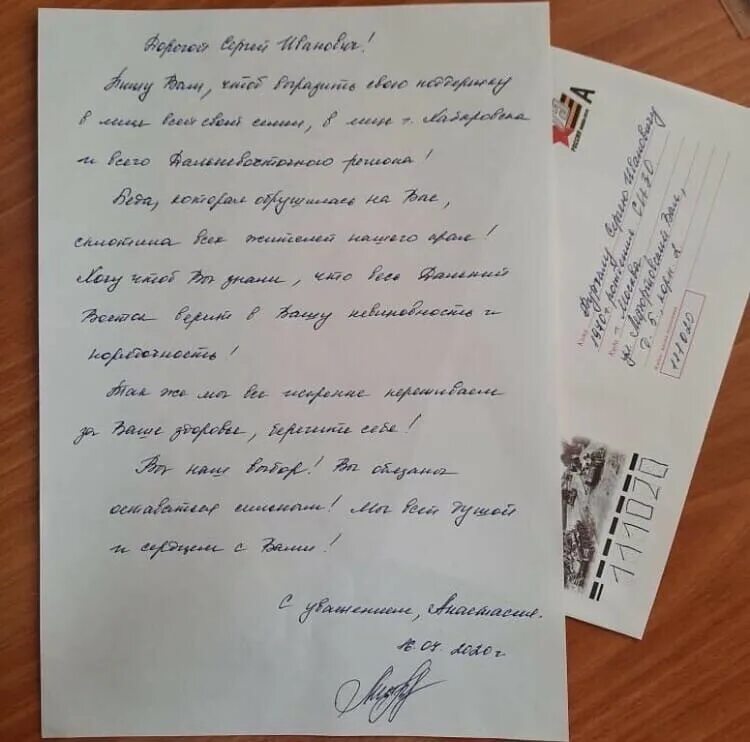 Дорогой Сергей Иванович!
Пишу Вам, чтоб выразить свою поддержку
в лице всей своей семьи, в лице г. Хабаровска
и всего Дальневосточного региона!
Беда, которая обрушилась на Вас,
сплотила всех жителей нашего края!
Хочу чтоб Вы знали, что весь Дальний
Восток верит в Вашу невиновность и
порядочность!
Так же мы все искренне переживаем
за Ваше здоровье, берегите себя!
Вы наш выбор! Вы обязаны
оставаться сильным! Мы всей душой
и сердцем с Вами!
С уважением, Анастасия.
16.07.2020г
А
РОССИЯ
Кому Фургалу Сергею Ивановичу
1970г. рождения СИЗО
Куда г. Москва
ул. Лефортовский Вал,
д. 5, корп. 2
111020
111020